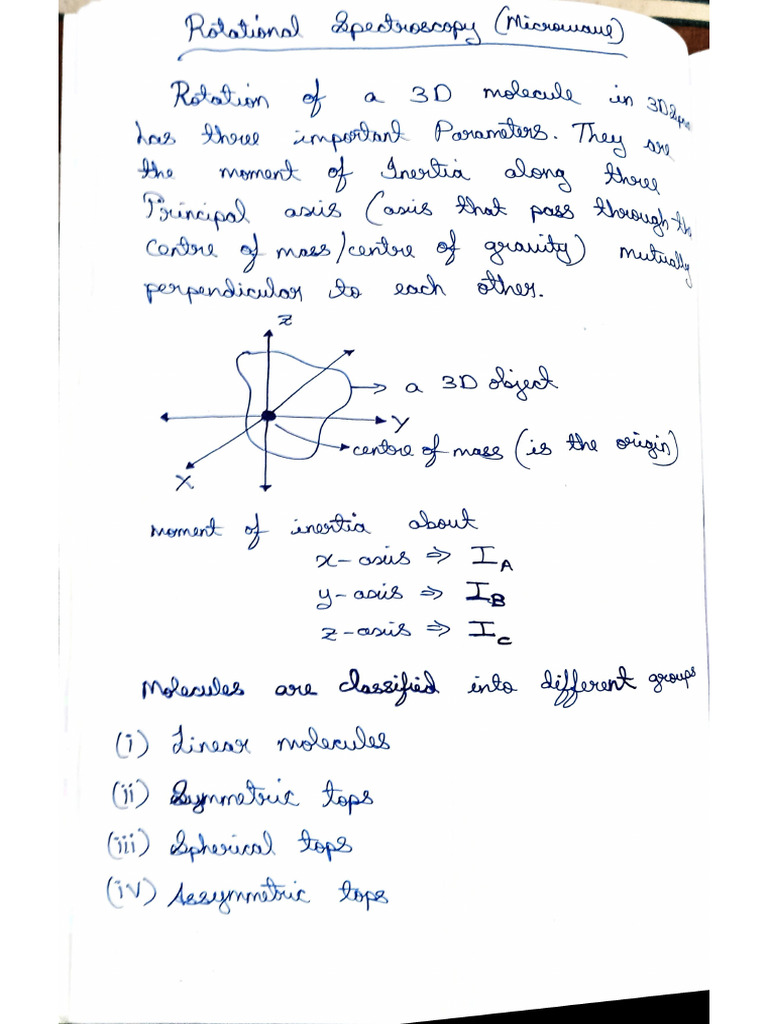 Rotational Spectroscopy (Microwave)
Rotation of a 3D molecule in 3D Space
has three important Parameters. They are
the moment of Inertia along three
Principal axis (axis that pass through the
Centre of mass/centre of gravity) mutually
perpendicular to each other.
Z
→ a 3D object
Y
centre of mass (is the origin)
X
moment of inertia about
x-axis ⇒ I_A
y-axis ⇒ I_B
z-axis ⇒ I_C
Molecules are classified into different groups
(i) Linear molecules
(ii) Symmetric tops
(iii) Spherical tops
(iv) Assymmetric tops